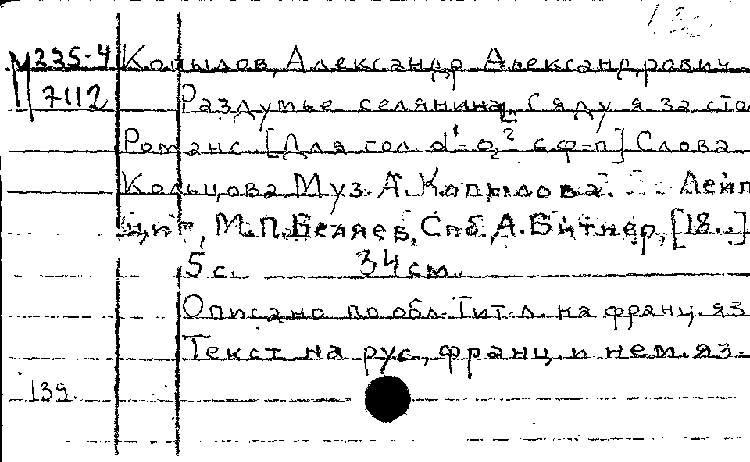 М235-4 Копылов, Александр Александрович
7112 Раздумье селянина. Сяду я за сто
Романс [Для гол. d¹-g² с ф-п] Слова
Кольцова Муз. А. Копылова. Лейп
циг, М.П. Беляев, Спб. А. Битнер, [18..]
5 с. 34 см.
Описано по обл. Тит. л. на франц. яз
Текст на рус., франц. и нем. яз.
139